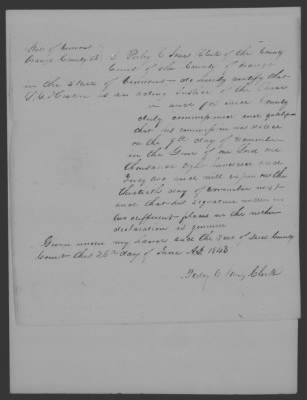 State of Vermont
Orange County ss I Perley C Jones Clerk of the County
Court of the County of Orange
in the State of Vermont do hereby certify that
is an acting Justice of the Peace
in and for said County
duly commissioned and qualified
that his commission was dated
on the 9th day of November
in the year of our Lord one
thousand eight hundred and
forty two and will expire on the
thirtieth day of November next
and that his signature written in
two different places in the within
declaration is genuine
Given under my hand and the seal of said County
Court this 26th day of June AD. 1843
Perley C Jones Clerk